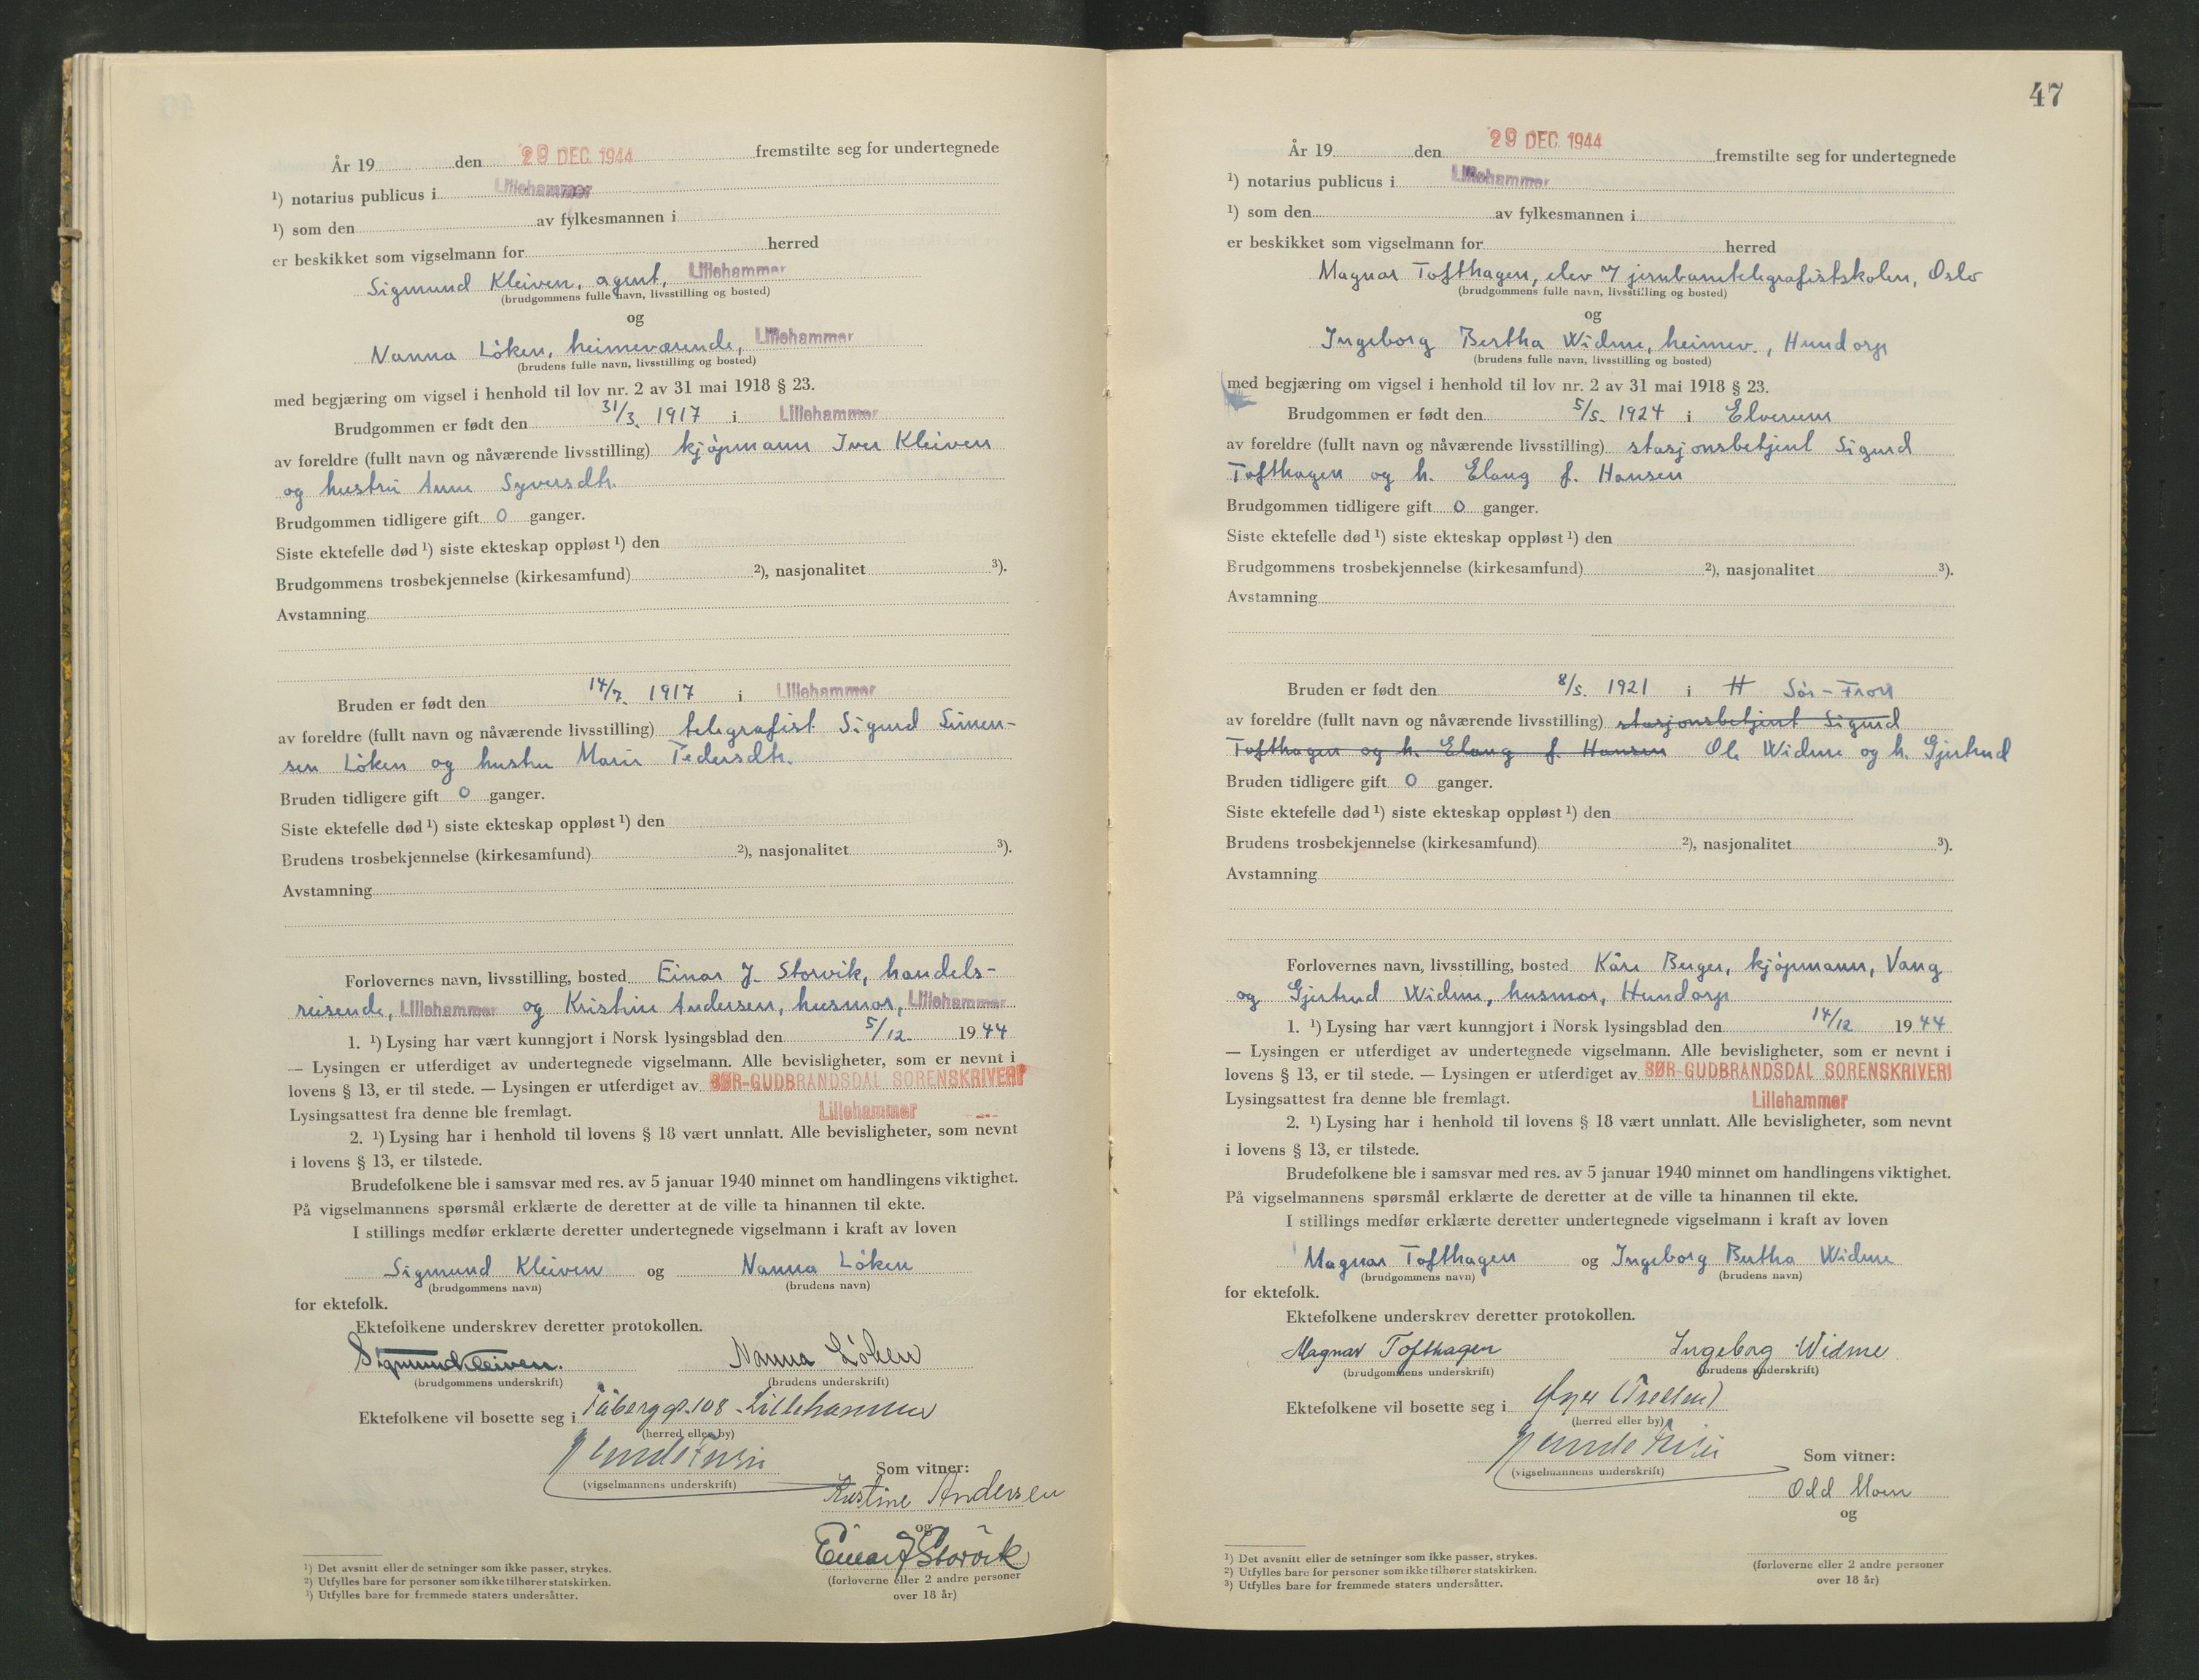 År 19 den 29 DEC 1944 fremstilte seg for undertegnede
¹) notarius publicus i Lillehammer
¹) som den av fylkesmannen i
er beskikket som vigselmann for herred
Sigmund Kleiven, agent, Lillehammer
(brudgommens fulle navn, livsstilling og bosted)
og
Nanna Löken, heimeværende, Lillehammer
(brudens fulle navn, livsstilling og bosted)
med begjæring om vigsel i henhold til lov nr. 2 av 31 mai 1918 § 23.
Brudgommen er født den 31/3. 1917 i Lillehammer
av foreldre (fullt navn og nåværende livsstilling) kjöpmann Iver Kleiven
og hustru Anne Syversdtr.
Brudgommen tidligere gift 0 ganger.
Siste ektefelle død ¹) siste ekteskap oppløst ¹) den
Brudgommens trosbekjennelse (kirkesamfund) ²), nasjonalitet ³).
Avstamning
Bruden er født den 14/7. 1917 i Lillehammer
av foreldre (fullt navn og nåværende livsstilling) telegrafist Sigurd Simen-
sen Löken og hustru Marie Pedersdtr.
Bruden tidligere gift 0 ganger.
Siste ektefelle død ¹) siste ekteskap oppløst ¹) den
Brudens trosbekjennelse (kirkesamfund) ²), nasjonalitet ³).
Avstamning
Forlovernes navn, livsstilling, bosted Einar J. Storvik, handels-
reisende, Lillehammer og Kristine Andersen, husmor, Lillehammer
1. ¹) Lysing har vært kunngjort i Norsk lysingsblad den 5/12. 1944
— Lysingen er utferdiget av undertegnede vigselmann. Alle bevisligheter, som er nevnt i
lovens § 13, er til stede. — Lysingen er utferdiget av SØR-GUDBRANDSDAL SORENSKRIVERI
Lysingsattest fra denne ble fremlagt. Lillehammer
2. ¹) Lysing har i henhold til lovens § 18 vært unnlatt. Alle bevisligheter, som nevnt
i lovens § 13, er tilstede.
Brudefolkene ble i samsvar med res. av 5 januar 1940 minnet om handlingens viktighet.
På vigselmannens spørsmål erklærte de deretter at de ville ta hinannen til ekte.
I stillings medfør erklærte deretter undertegnede vigselmann i kraft av loven
Sigmund Kleiven og Nanna Löken
(brudgommens navn) (brudens navn)
for ektefolk.
Ektefolkene underskrev deretter protokollen.
Sigmund Kleiven. Nanna Löken
(brudgommens underskrift) (brudens underskrift)
Ektefolkene vil bosette seg i Fåberggt. 108 - Lillehammer
(herred eller by)
(vigselmannens underskrift) Som vitner:
Kristine Andersen
og
Einar J Storvik
(forloverne eller 2 andre personer
over 18 år)
¹) Det avsnitt eller de setninger som ikke passer, strykes.
²) Utfylles bare for personer som ikke tilhører statskirken.
³) Utfylles bare for fremmede staters undersåtter.
47
År 19 den 29 DEC 1944 fremstilte seg for undertegnede
¹) notarius publicus i Lillehammer
¹) som den av fylkesmannen i
er beskikket som vigselmann for herred
Magnar Tofthagen, elev v/ jernbanetelegrafistskolen, Oslo
(brudgommens fulle navn, livsstilling og bosted)
og
Ingeborg Bertha Widme, heimev., Hundorp
(brudens fulle navn, livsstilling og bosted)
med begjæring om vigsel i henhold til lov nr. 2 av 31 mai 1918 § 23.
Brudgommen er født den 5/5. 1924 i Elverum
av foreldre (fullt navn og nåværende livsstilling) stasjonsbetjent Sigurd
Tofthagen og h. Elaug f. Hansen
Brudgommen tidligere gift 0 ganger.
Siste ektefelle død ¹) siste ekteskap oppløst ¹) den
Brudgommens trosbekjennelse (kirkesamfund) ²), nasjonalitet ³).
Avstamning
Bruden er født den 8/5. 1921 i H Sör-Fron
av foreldre (fullt navn og nåværende livsstilling) stasjonsbetjent Sigurd
Tofthagen og h. Elaug f. Hansen Ole Widme og h. Gjertrud
Bruden tidligere gift 0 ganger.
Siste ektefelle død ¹) siste ekteskap oppløst ¹) den
Brudens trosbekjennelse (kirkesamfund) ²), nasjonalitet ³).
Avstamning
Forlovernes navn, livsstilling, bosted Kåre Berger, kjöpmann, Vang
og Gjertrud Widme, husmor, Hundorp
1. ¹) Lysing har vært kunngjort i Norsk lysingsblad den 14/12 1944
— Lysingen er utferdiget av undertegnede vigselmann. Alle bevisligheter, som er nevnt i
lovens § 13, er til stede. — Lysingen er utferdiget av SØR-GUDBRANDSDAL SORENSKRIVERI
Lysingsattest fra denne ble fremlagt. Lillehammer
2. ¹) Lysing har i henhold til lovens § 18 vært unnlatt. Alle bevisligheter, som nevnt
i lovens § 13, er tilstede.
Brudefolkene ble i samsvar med res. av 5 januar 1940 minnet om handlingens viktighet.
På vigselmannens spørsmål erklærte de deretter at de ville ta hinannen til ekte.
I stillings medfør erklærte deretter undertegnede vigselmann i kraft av loven
Magnar Tofthagen og Ingeborg Bertha Widme
(brudgommens navn) (brudens navn)
for ektefolk.
Ektefolkene underskrev deretter protokollen.
Magnar Tofthagen Ingeborg Widme
(brudgommens underskrift) (brudens underskrift)
Ektefolkene vil bosette seg i
(herred eller by)
(vigselmannens underskrift) Som vitner:
Odd Moen
og
(forloverne eller 2 andre personer
over 18 år)
¹) Det avsnitt eller de setninger som ikke passer, strykes.
²) Utfylles bare for personer som ikke tilhører statskirken.
³) Utfylles bare for fremmede staters undersåtter.